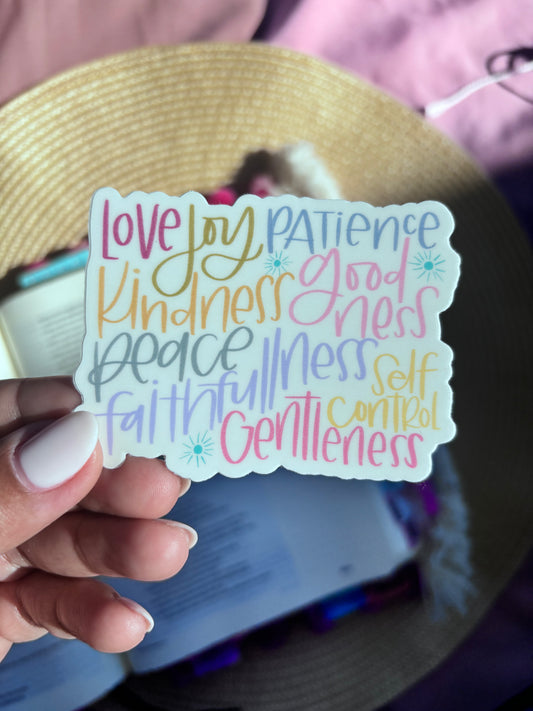 Love Joy Patience
Kindness good
ness
peace
faithfullness
Self
control
Gentleness